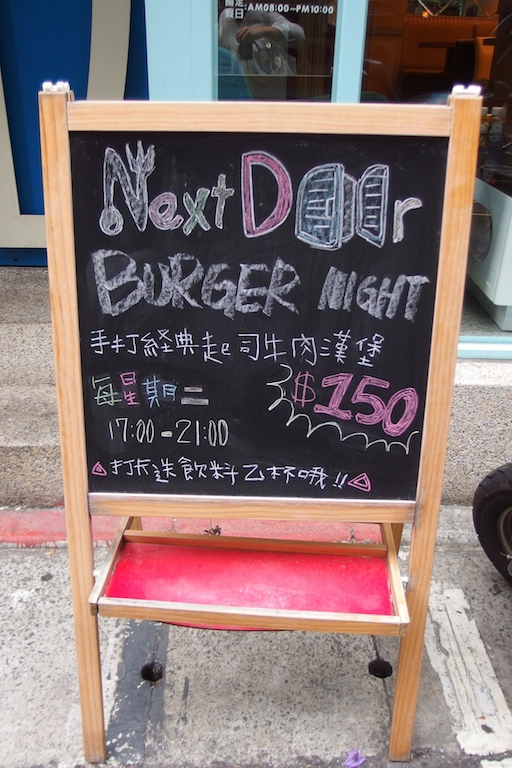 假日:AM08:00~PM10:00
Next Door
BURGER NIGHT
手打経典起司牛肉漢堡
每星期二
$150
17:00-21:00
打卡送飲料乙杯哦!!